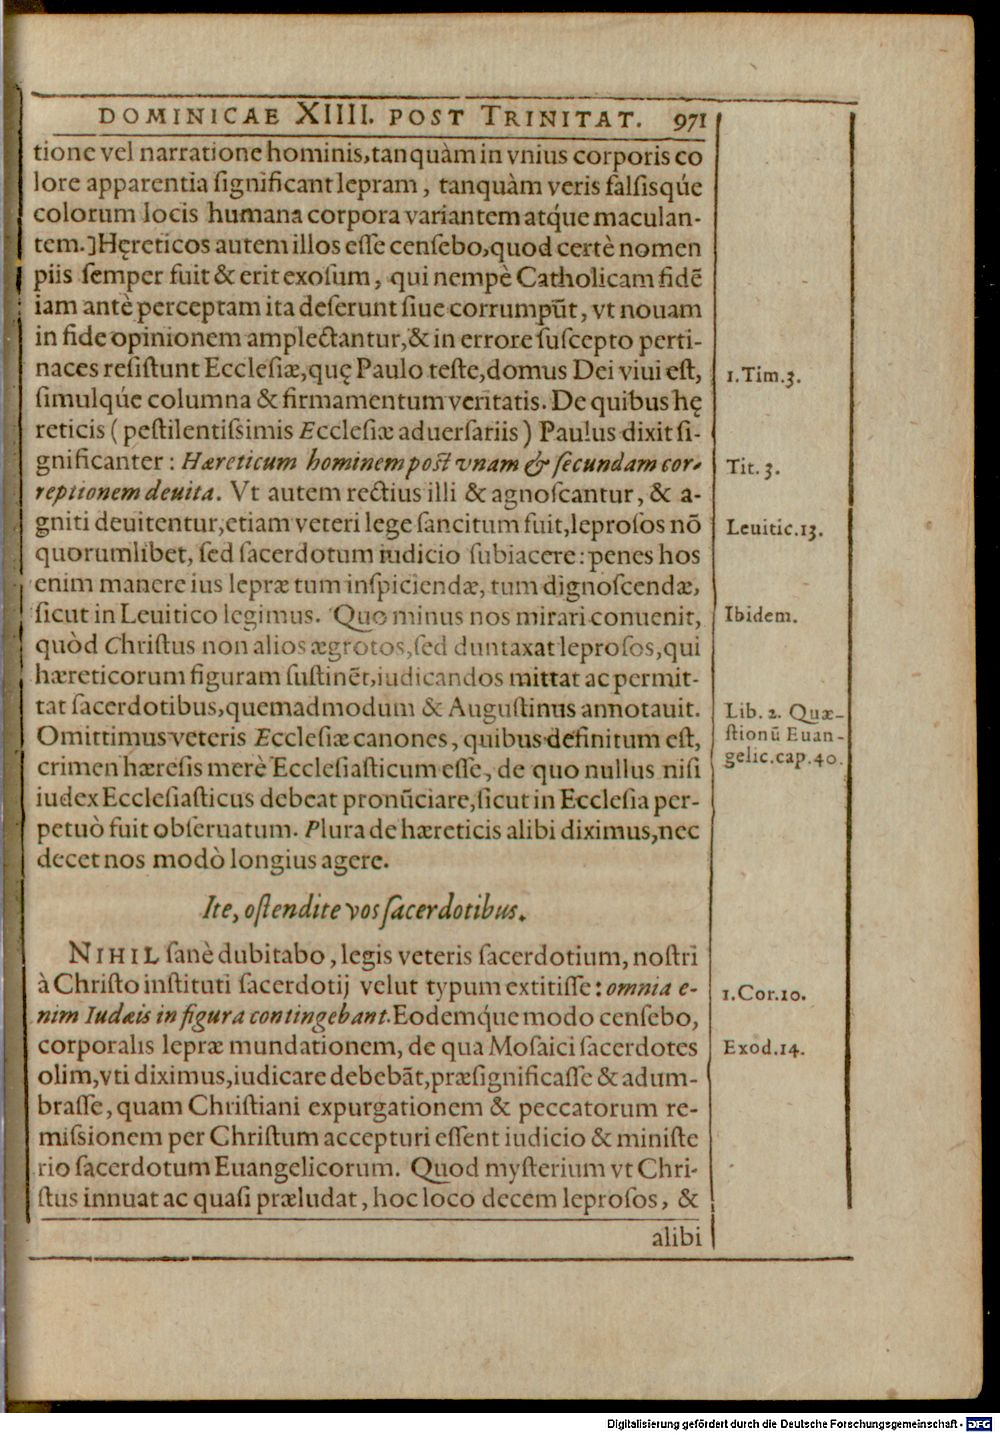 DOMINICAE XIIII. POST TRINITAT. 971
tione vel narratione hominis, tanquàm in vnius corporis co
lore apparentia significant lepram, tanquàm veris falsisq́ue
colorum locis humana corpora variantem atq́ue maculan-
tem.] Hęreticos autem illos esse censebo, quod certè nomen
piis semper fuit & erit exosum, qui nempè Catholicam fidē
iam antè perceptam ita deserunt siue corrumpūt, vt nouam
in fide opinionem amplectantur, & in errore suscepto perti-
naces resistunt Ecclesiæ, quę Paulo teste, domus Dei viui est,
1.Tim.3.
simulq́ue columna & firmamentum veritatis. De quibus hę
reticis (pestilentissimis Ecclesiæ aduersariis) Paulus dixit si-
gnificanter: Hæreticum hominem post vnam & secundam cor-
Tit.3.
reptionem deuita. Vt autem rectius illi & agnoscantur, & a-
gniti deuitentur, etiam veteri lege sancitum fuit, leprosos nō
Leuitic.13.
quorumlibet, sed sacerdotum iudicio subiacere: penes hos
enim manere ius lepræ tum inspiciendæ, tum dignoscendæ,
sicut in Leuitico legimus. Quo minus nos mirari conuenit,
Ibidem.
quòd Christus non alios ægrotos, sed duntaxat leprosos, qui
hæreticorum figuram sustinēt, iudicandos mittat ac permit-
tat sacerdotibus, quemadmodum & Augustinus annotauit.
Lib. 2. Quæ-
Omittimus veteris Ecclesiæ canones, quibus definitum est,
stionū Euan-
crimen hæresis merè Ecclesiasticum esse, de quo nullus nisi
gelic.cap.40.
iudex Ecclesiasticus debeat pronūciare, sicut in Ecclesia per-
petuò fuit obseruatum. Plura de hæreticis alibi diximus, nec
decet nos modò longius agere.
Ite, ostendite vos sacerdotibus.
NIHIL sanè dubitabo, legis veteris sacerdotium, nostri
à Christo instituti sacerdotij velut typum extitisse: omnia e-
1.Cor.10.
nim Iudæis in figura contingebant. Eodemq́ue modo censebo,
corporalis lepræ mundationem, de qua Mosaici sacerdotes
Exod.14.
olim, vti diximus, iudicare debebāt, præsignificasse & adum-
brasse, quam Christiani expurgationem & peccatorum re-
missionem per Christum accepturi essent iudicio & ministe
rio sacerdotum Euangelicorum. Quod mysterium vt Chri-
stus innuat ac quasi præludat, hoc loco decem leprosos, &
alibi
Digitalisierung gefördert durch die Deutsche Forschungsgemeinschaft - DFG